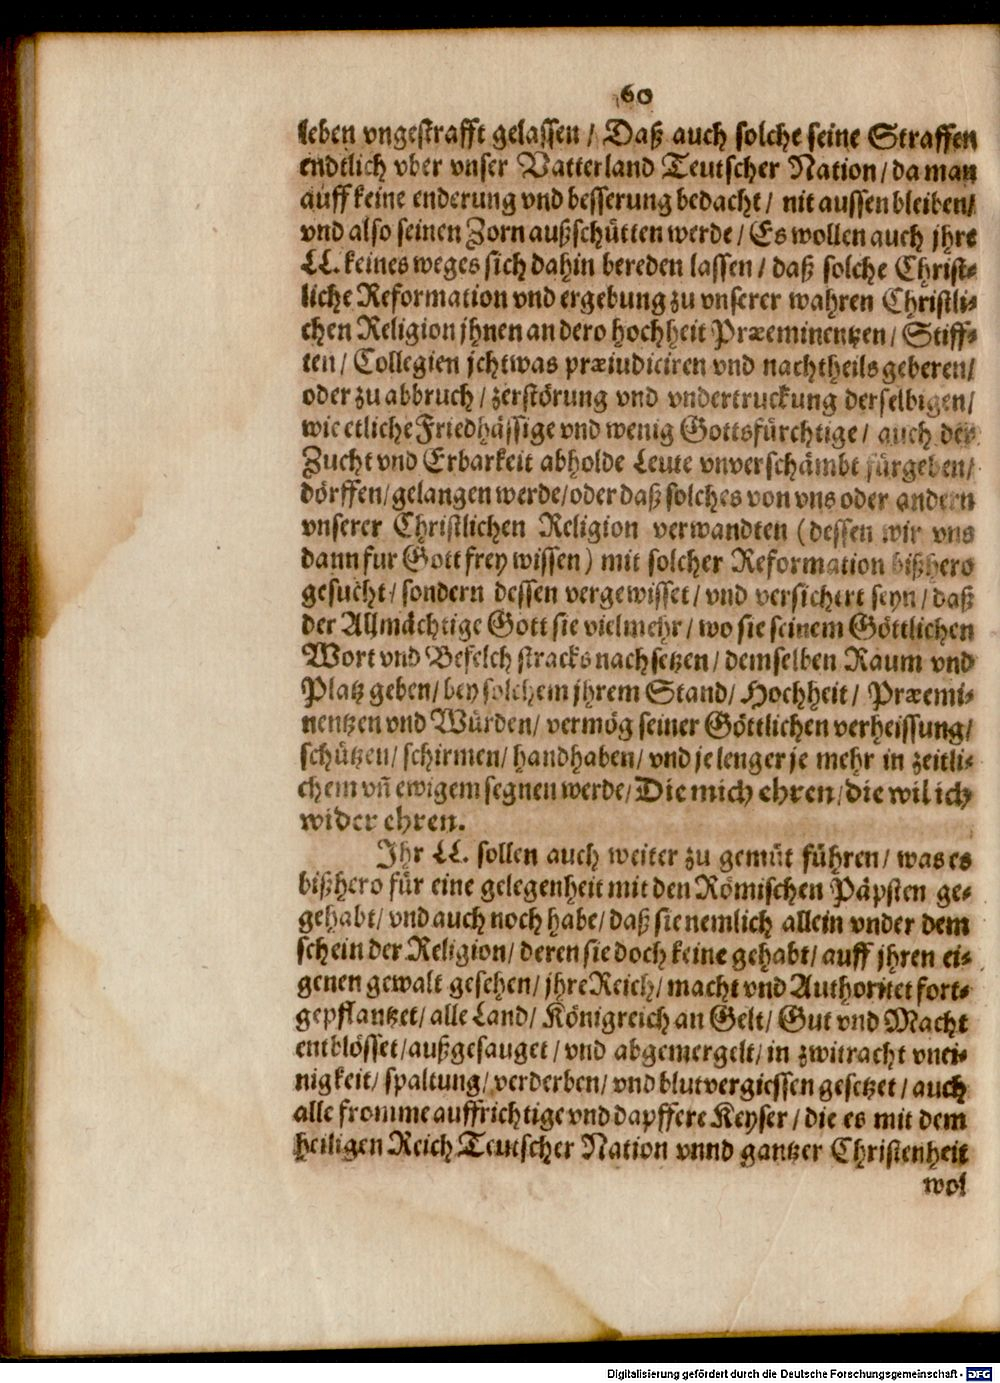 60
leben vngestrafft gelassen / Daß auch solche seine Straffen
endtlich vber vnser Vatterland Teutscher Nation / da man
auff keine enderung vnd besserung bedacht / nit aussen bleiben/
vnd also seinen Zorn außschütten werde / Es wollen auch jhre
LL. keines weges sich dahin bereden lassen / daß solche Christ-
liche Reformation vnd ergebung zu vnserer wahren Christli-
chen Religion jhnen an dero hochheit Præeminentzen / Stiff-
ten / Collegien jchtwas præiudiciren vnd nachtheils geberen/
oder zu abbruch / zerstörung vnd vndertruckung derselbigen/
wie etliche Friedhässige vnd wenig Gottsfürchtige / auch der
Zucht vnd Erbarkeit abholde Leute vnverschämbt fürgeben/
dörffen/ gelangen werde/ oder daß solches von vns oder andern
vnserer Christlichen Religion verwandten (dessen wir vns
dann fur Gott frey wissen) mit solcher Reformation bißhero
gesucht/ sondern dessen vergewisset/ vnd versichert seyn / daß
der Allmächtige Gott sie vielmehr / wo sie seinem Göttlichen
Wort vnd Befelch stracks nachsetzen / demselben Raum vnd
Platz geben/ bey solchem jhrem Stand/ Hochheit / Præemi-
nentzen vnd Würden/ vermög seiner Göttlichen verheissung/
schützen/ schirmen/ handhaben/ vnd je lenger je mehr in zeitli-
chem vñ ewigem segnen werde/ Die mich ehren / die wil ich
wider ehren.
Jhr LL. sollen auch weiter zu gemüt führen / was es
bißhero für eine gelegenheit mit den Römischen Päpsten ge-
gehabt/ vnd auch noch habe/ daß sie nemlich allein vnder dem
schein der Religion/ deren sie doch keine gehabt/ auff jhren ei-
genen gewalt gesehen/ jhre Reich/ macht vnd Authoritet fort-
gepflantzet/ alle Land/ Königreich an Gelt/ Gut vnd Macht
entblösset/ außgesauget / vnd abgemergelt/ in zwitracht vnei-
nigkeit/ spaltung/ verderben/ vnd blutvergiessen gesetzet / auch
alle fromme auffrichtige vnd dapffere Keyser / die es mit dem
heiligen Reich Teutscher Nation vnnd gantzer Christenheit
wol
Digitalisierung gefördert durch die Deutsche Forschungsgemeinschaft - DFG